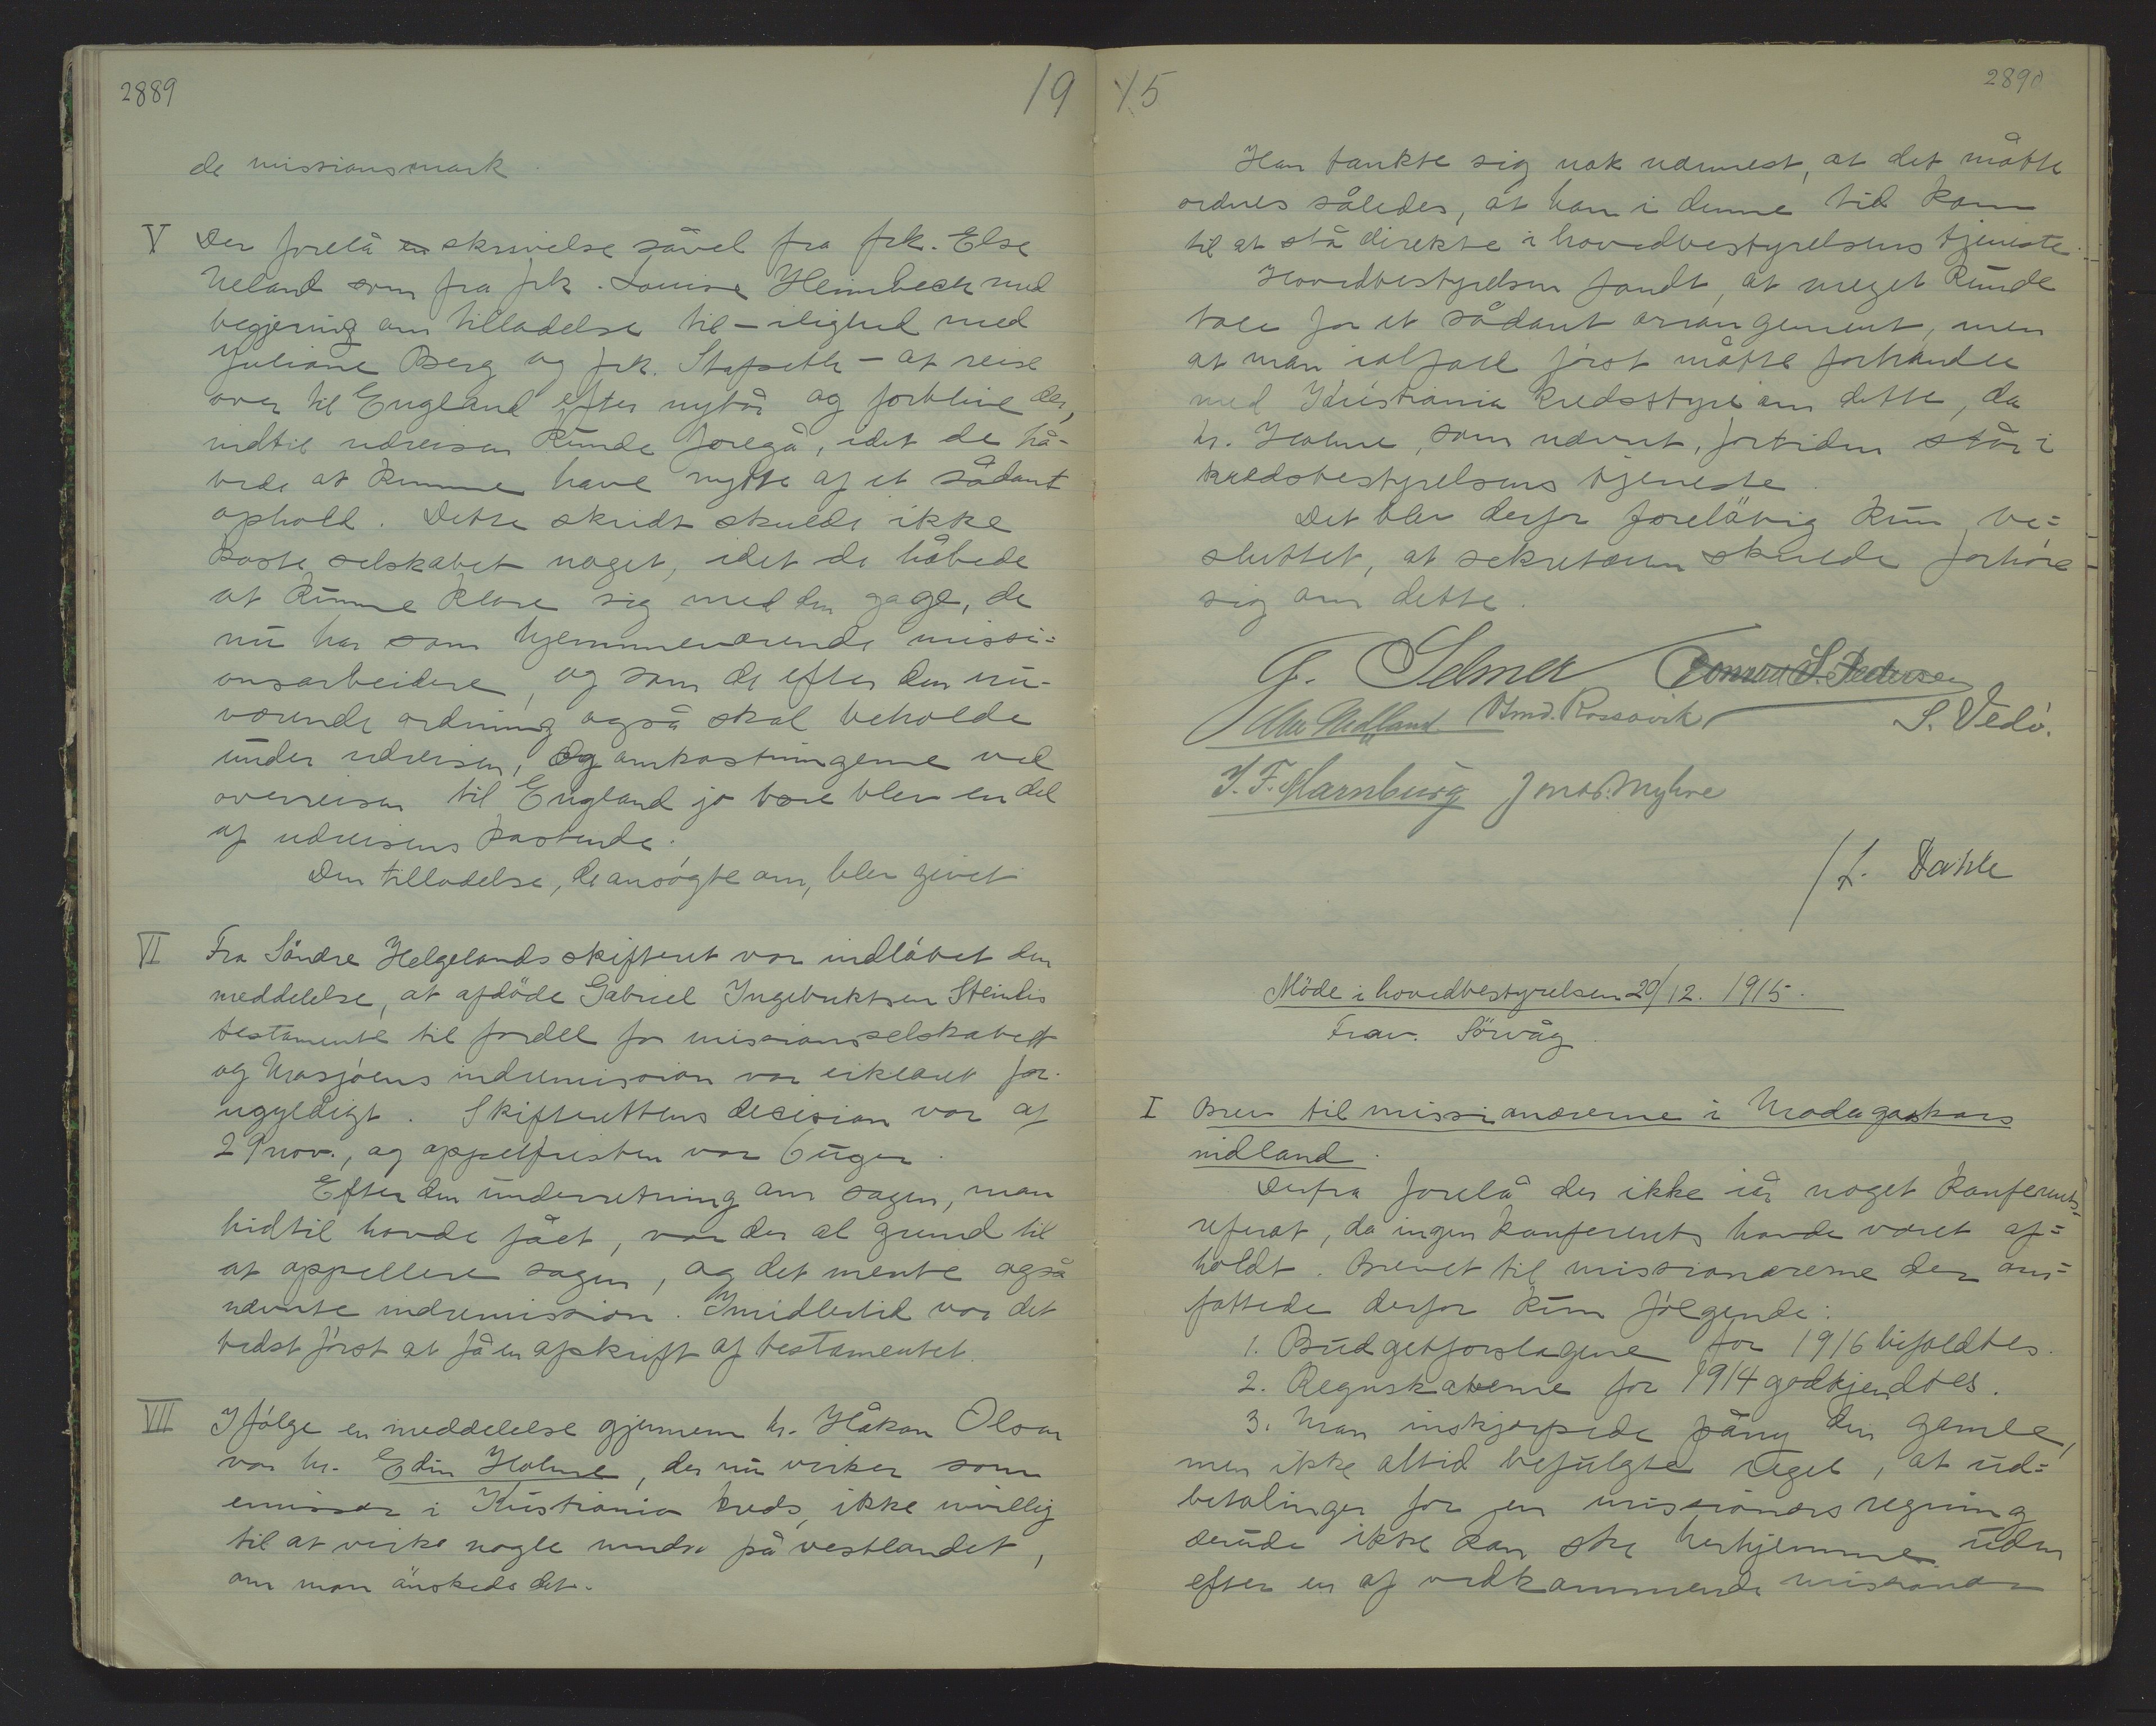 2889
19
de missionsmark.
V Der forelå skrivelse såvel fra frk. Else
Ueland som fra frk. Louise Heimbeck med
begjering om tilladelse til – ilighed med
Juliane Berg og frk. Stafseth – at reise
over til England efter nytår og forblive der,
indtil udreisen kunde foregå, idet de hå-
bede at kunne have nytte af et sådant
ophold. Dette skridt skulde ikke
koste selskabet noget, idet de håbede
at kunne klare sig med den gage, de
nu har som hjemmeværende missi=
onsarbeidere, og som de efter den nu-
værende ordning også skal beholde
under udreisen, og omkostningerne ved
overreisen til England jo bare blev en del
af udreisens kostende.
Den tilladelse, de ansøgte om, blev givet
VI Fra Söndre Helgelands skifteret var indløbet den
meddelelse, at afdöde Gabriel Ingebriktsen Steinlis
testamente til fordel for missionsselskabet
og Mosjøens indremission var erklæret for
ugyldigt. Skifterettens decision var af
29 nov., og appelfristen var 6 uger.
Efter den underretning om sagen, man
hidtil havde fået, var der al grund til
at appellere sagen, og det mente også
nævnte indremission. Imidlertid var det
bedst først at få en afskrift af testamentet.
VII Ifølge en meddelelse gjennem hr. Håkon Olsen
var hr. Edin Holme, der nu virker som
emissær i Kristiania kreds, ikke uvillig
til at virke nogle mndr. på vestlandet,
om man ønskede det.
15
2890
Han tænkte sig nok nærmest, at det måtte
ordnes således, at han i denne tid kom
til at stå direkte i hovedbestyrelsens tjeneste.
Hovedbestyrelsen fandt, at meget kunde
tale for et sådant arrangement, men
at man ialfald først måtte forhandle
med Kristiania kredsstyre om dette, da
hr. Holme, som nævnt, fortiden står i
kredsbestyrelsens tjeneste.
Det blev derfor foreløbig kun be=
sluttet, at sekretæren skulde forhøre
sig om dette.
G. Selmer Conrad S. Pedersen
Rossavik S. Vedø.
J. F. Marnburg Jonas Myhre
/L. Dahle
Möde i hovedbestyrelsen 20/12. 1915.
Frav. Sörvåg
I Brev til missionærerne i Madagaskars
indland.
Derfra forelå der ikke iår noget konferents-
referat, da ingen konferents havde været af=
holdt. Brevet til missionærerne der om=
fattede derfor kun følgende:
1. Budgetforslagene for 1916 bifaldtes.
2. Regnskaberne for 1914 godkjendtes.
3. Man inskjærpede påny den gamle,
men ikke altid befulgte regel, at ud=
betalinger for en missionærs regning
derude ikke kan ske herhjemme uden
efter en af vedkommende missionær